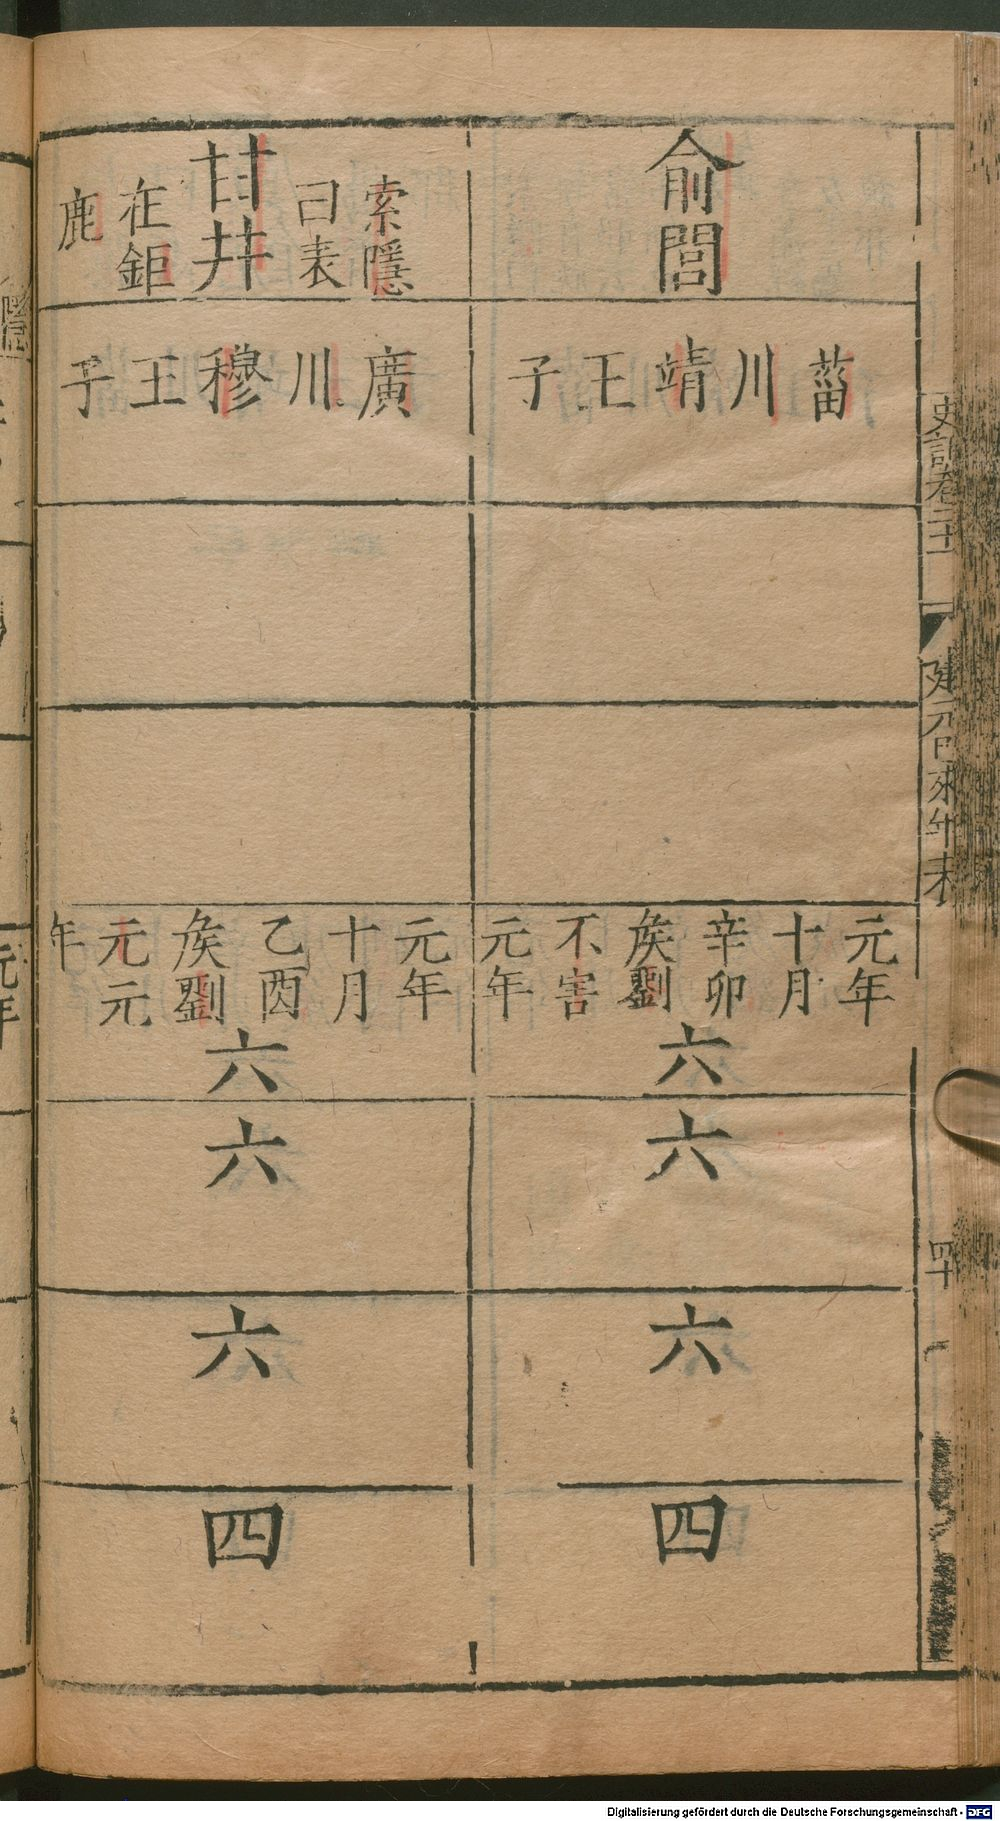 史記卷二十一
建元㠯來年表
四十
俞閭
菑川靖王子
元年
十月
辛卯
矦劉
不害
元年
六
六
六
四
索隱
曰表
甘井
在鉅
鹿
廣川穆王子
元年
十月
乙酉
矦劉
元元
年
六
六
六
四
隱
元年
Digitalisierung gefördert durch die Deutsche Forschungsgemeinschaft - DFG